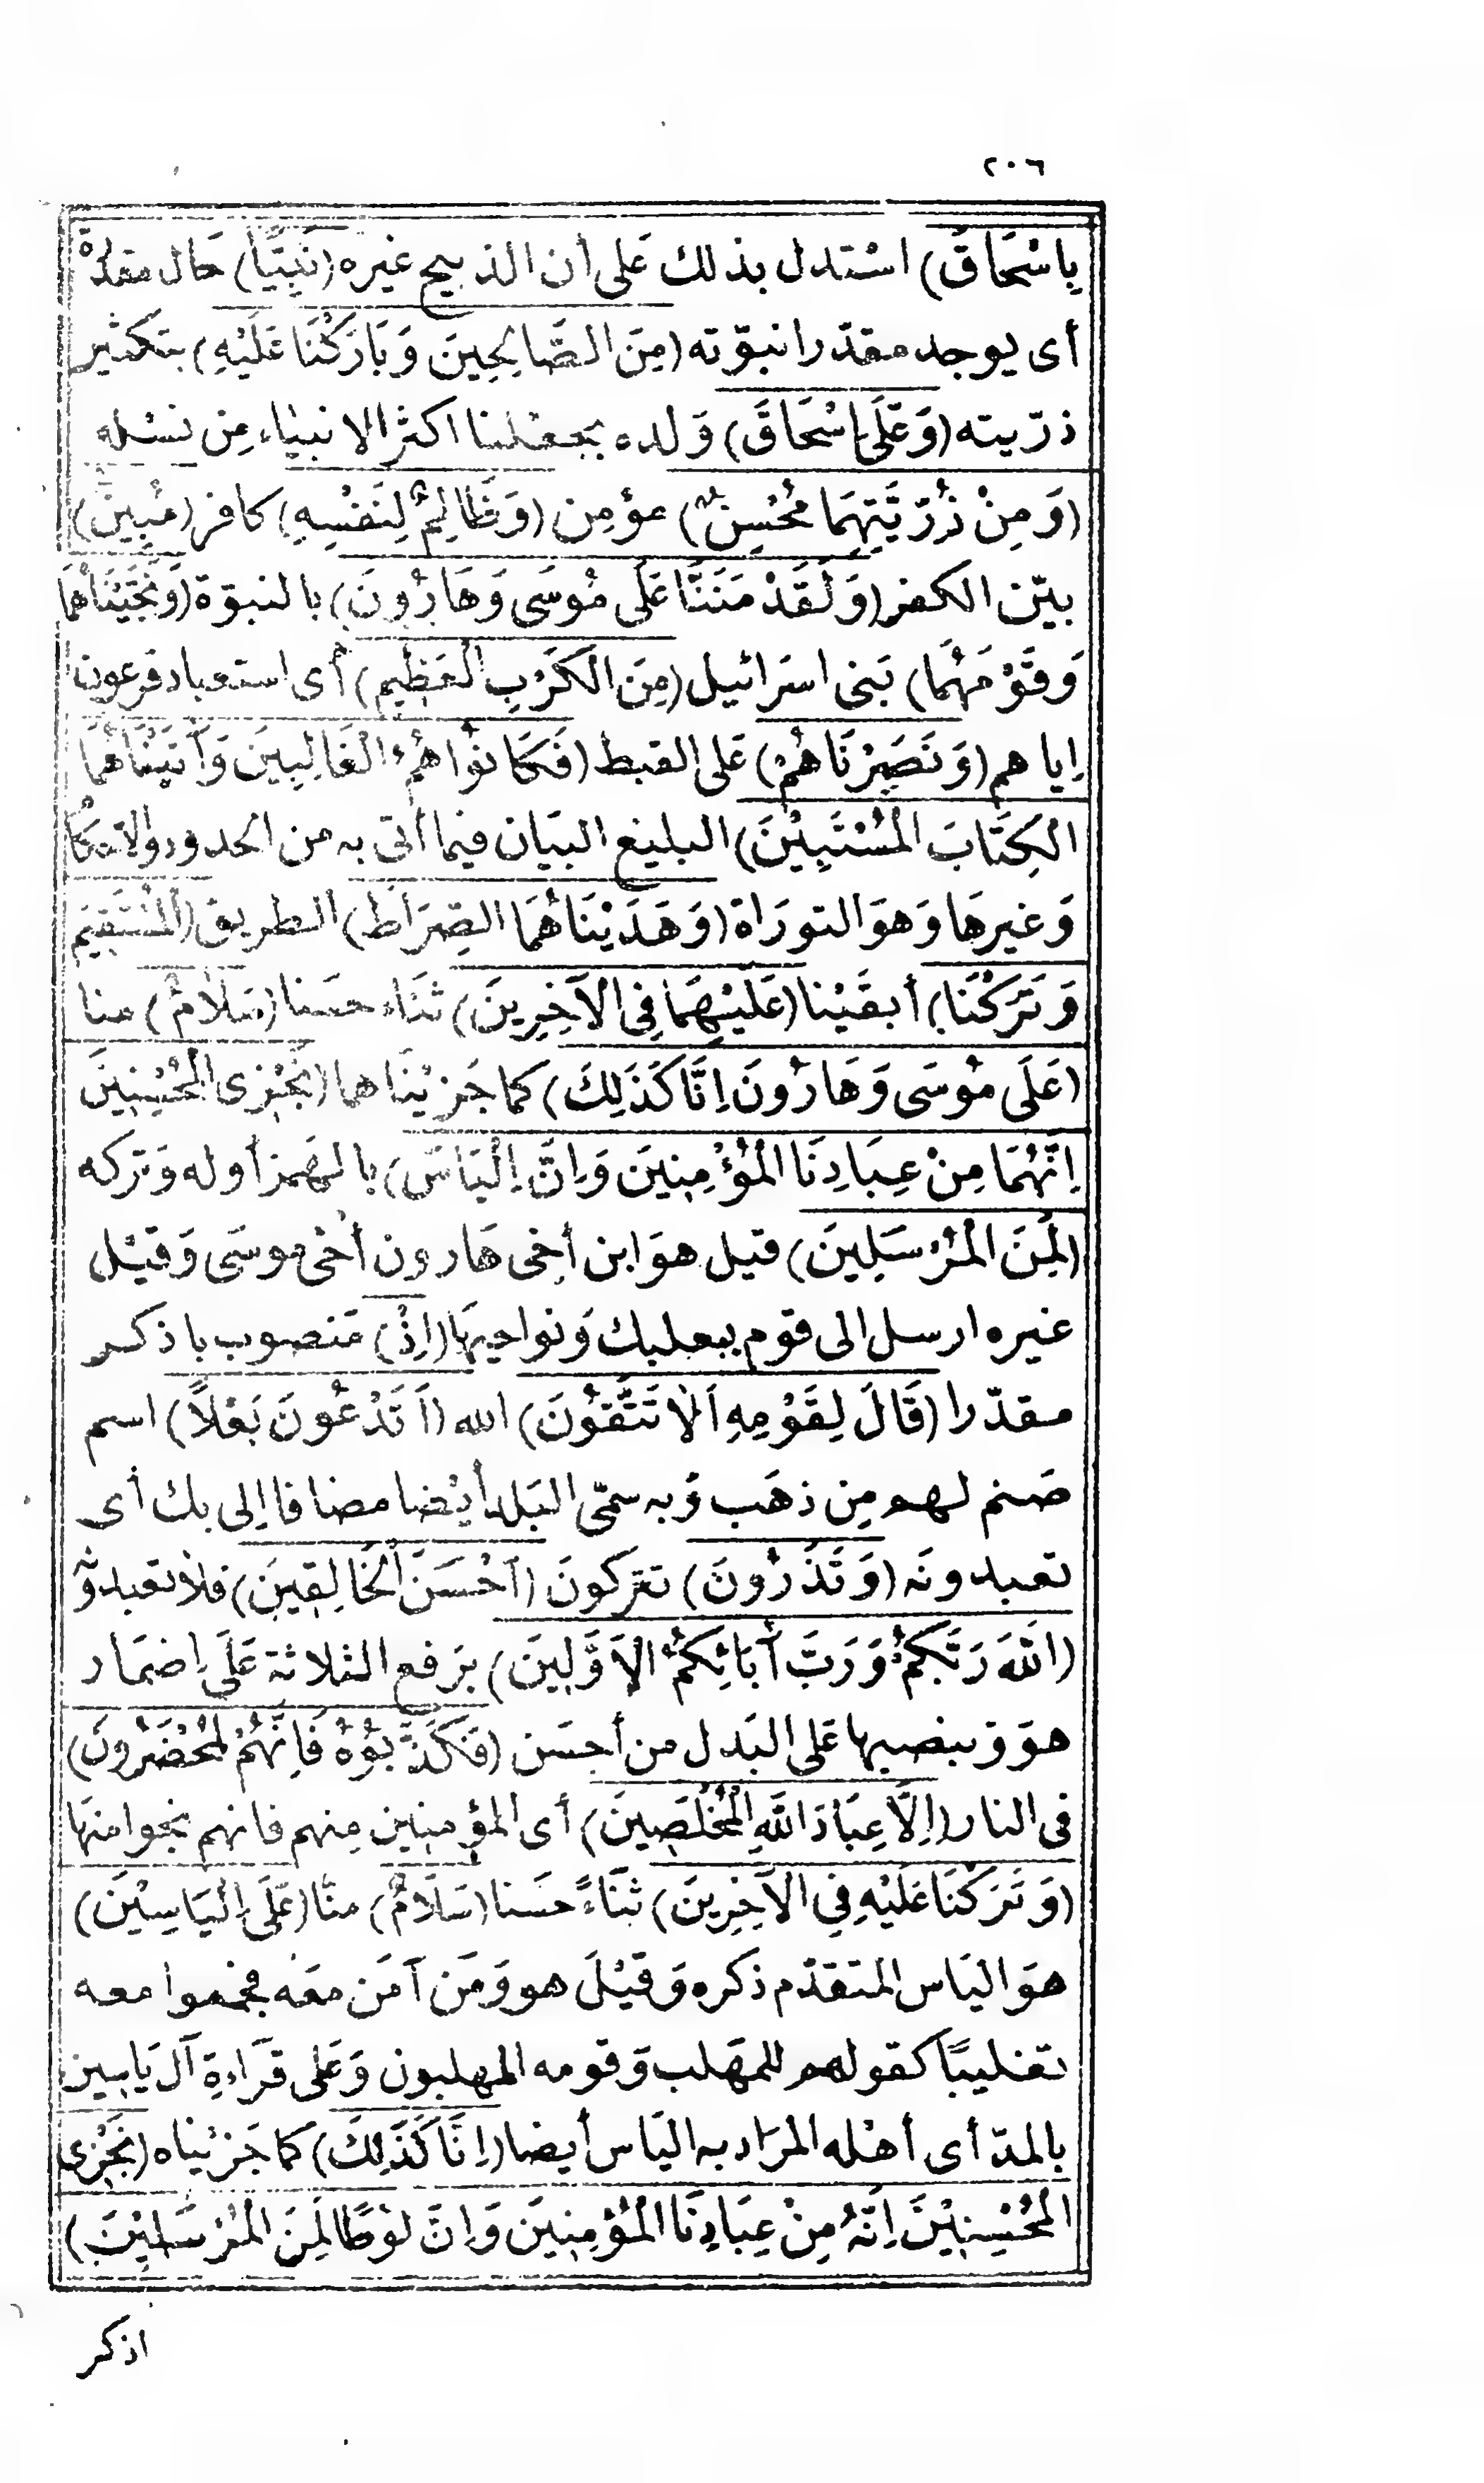 ٢٠٦
بِاسْحَاقَ) اسْتدل بذلك عَلى أن الذبيح غيره (نَبِيًّا) حَال مقدرة
أى يوجد مقدّرا نبوّته (مِنَ الصَّالِحِينَ وَبَارَكْنَا عَلَيْهِ) بتكثير
ذرّيته (وَعَلَى اِسْحَاقَ) وَلده بجعْلنا اكثر الانبيَاء مِن نسْله
(وَمِنْ ذُرِّيَّتِهِمَا مُحْسِنٌ) مؤمِن (وَظَالِمٌ لِنَفْسِهِ) كافر (مُبِينٌ)
بيّن الكفر (وَلَقَدْ مَنَنَّا عَلَى مُوسَى وَهَارُونَ) بالنبوّة (وَنَجَّيْنَاهُمَا
وَقَوْمَهُمَا) بَنى اسرَائيل (مِنَ الْكَرْبِ الْعَظِيمِ) أى استعباد فرعون
اِياهم (وَنَصَرْنَاهُمْ) عَلى القبط (فَكَانُوا هُمُ الْغَالِبِينَ وَآتَيْنَاهُمَا
الْكِتَابَ الْمُسْتَبِيْنَ) البليغ البيَان فيما أتى به من الحدود والاحكام
وَغيرهَا وَهوَ التورَاة (وَهَدَيْنَاهُمَا الصِّرَاطَ) الطريق (الْمُسْتَقِيمَ
وَتَرَكْنَا) أبقَيْنا (عَلَيْهِمَا فِى الْآخِرِينَ) ثنَاء حسَنا (سَلَامٌ) منا
(عَلَى مُوسَى وَهَارُونَ اِنَّا كَذَلِكَ) كما جَزيْنَاهما (نَجْزِى الْمُحْسِنِينَ
اِنَّهُمَا مِنْ عِبَادِنَا الْمُؤْمِنِينَ وَاِنَّ اِلْيَاسَ) بالهَمز أوله وَتركه
(لَمِنَ الْمُرْسَلِينَ) قيل هوَ ابن أخى هَارون أخى موسَى وَقيْل
غيره ارسل الى قوم ببعلبك وَنواحيهَا (اِذْ) مَنصوب باذكر
مقدّرا (قَالَ لِقَوْمِهِ اَلَا تَتَّقُونَ) الله (اَتَدْعُونَ بَعْلاً) اسم
صَنم لهم مِن ذهَب وَبه سمّى البَلد أيْضا مضافا اِلى بك أى
تعبدونَه (وَتَذَرُونَ) تتركونَ (اَحْسَنَ الْخَالِقِينَ) فلا تعبدونه
(اَللّٰهَ رَبَّكُمْ وَرَبَّ أَبَائِكُمُ الْاَوَّلِينَ) برَفع الثلاثة عَلَى اِضمَار
هوَ وَبنصبها عَلى البَدل من أحسَن (فَكَذَّبُوهُ فَاِنَّهُمْ لَمُحْضَرُونَ)
فى النار (اِلَّا عِبَادَ اللّٰهِ الْمُخْلَصِينَ) أى المؤمنين مِنهم فانهم نجوا منهَا
(وَتَرَكْنَا عَلَيْهِ فِى الْآخِرِينَ) ثنَاءً حسَنا (سَلَامٌ) منّا (عَلَى اِلْيَاسِيْنَ)
هوَ اليَاس المتقدّم ذكره وَقيْلَ هو وَمَن آمَن معَه فجُمعوا معه
تغليبًا كقولهم للمهَلب وَقومه المهلبون وَعَلى قرَاءةِ آل يَاسِين
بالمدّ أى أهْله المرَاد به اليَاس أيضا (اِنَّا كَذَلِكَ) كما جَزيْناه (نَجْزِى
الْمُحْسِنِيْنَ اِنَّهُ مِنْ عِبَادِنَا الْمُؤْمِنِينَ وَاِنَّ لُوْطًا لَمِنَ الْمُرْسَلِيْنَ)
اذكر